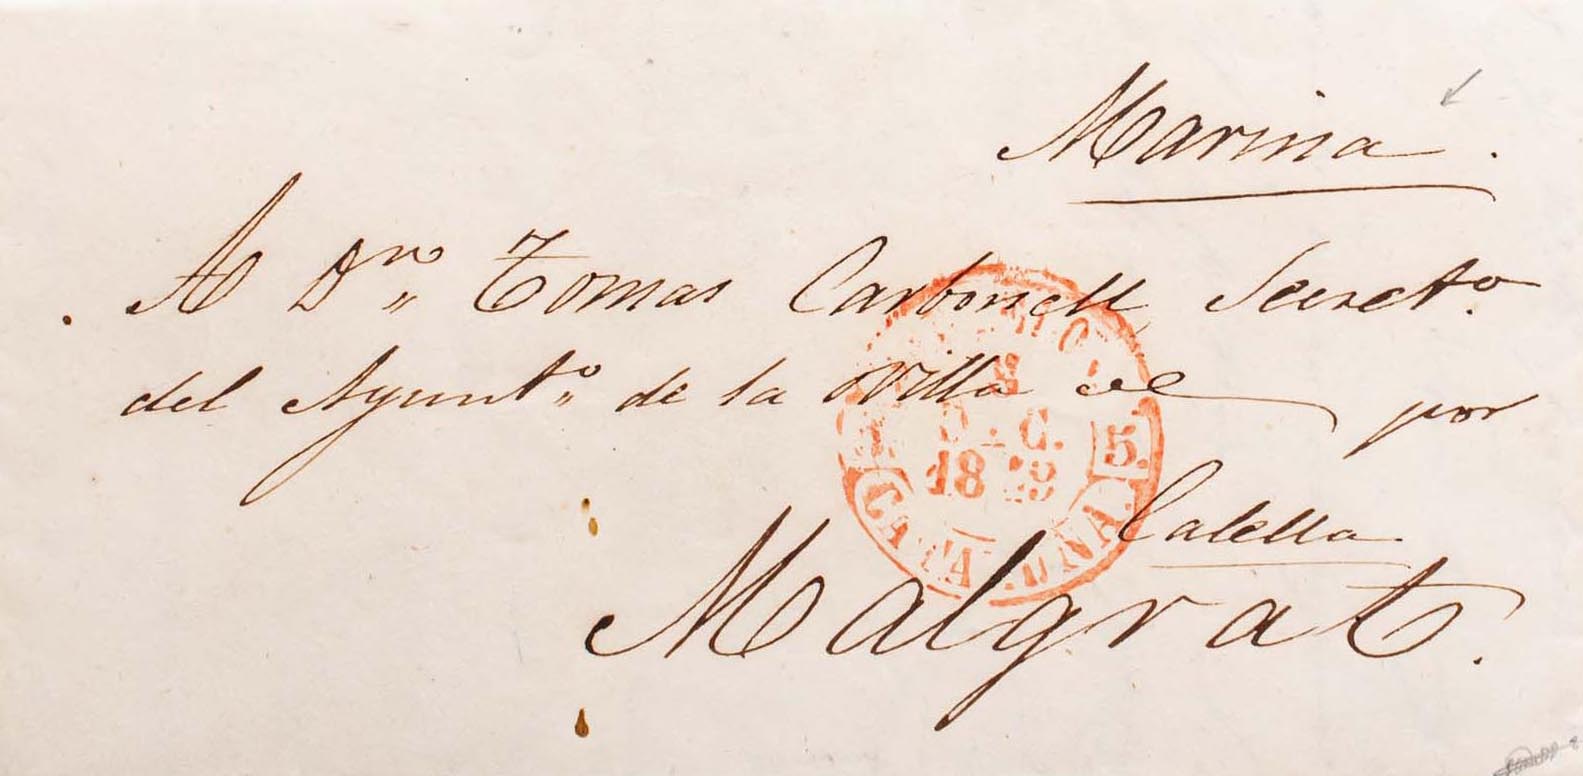 Marina.
A Dn. Tomas Carbonell, Secreto.
del Ayunto. de la Villa de por
Calella.
Malgrat.
5.
18
CATALUÑA.